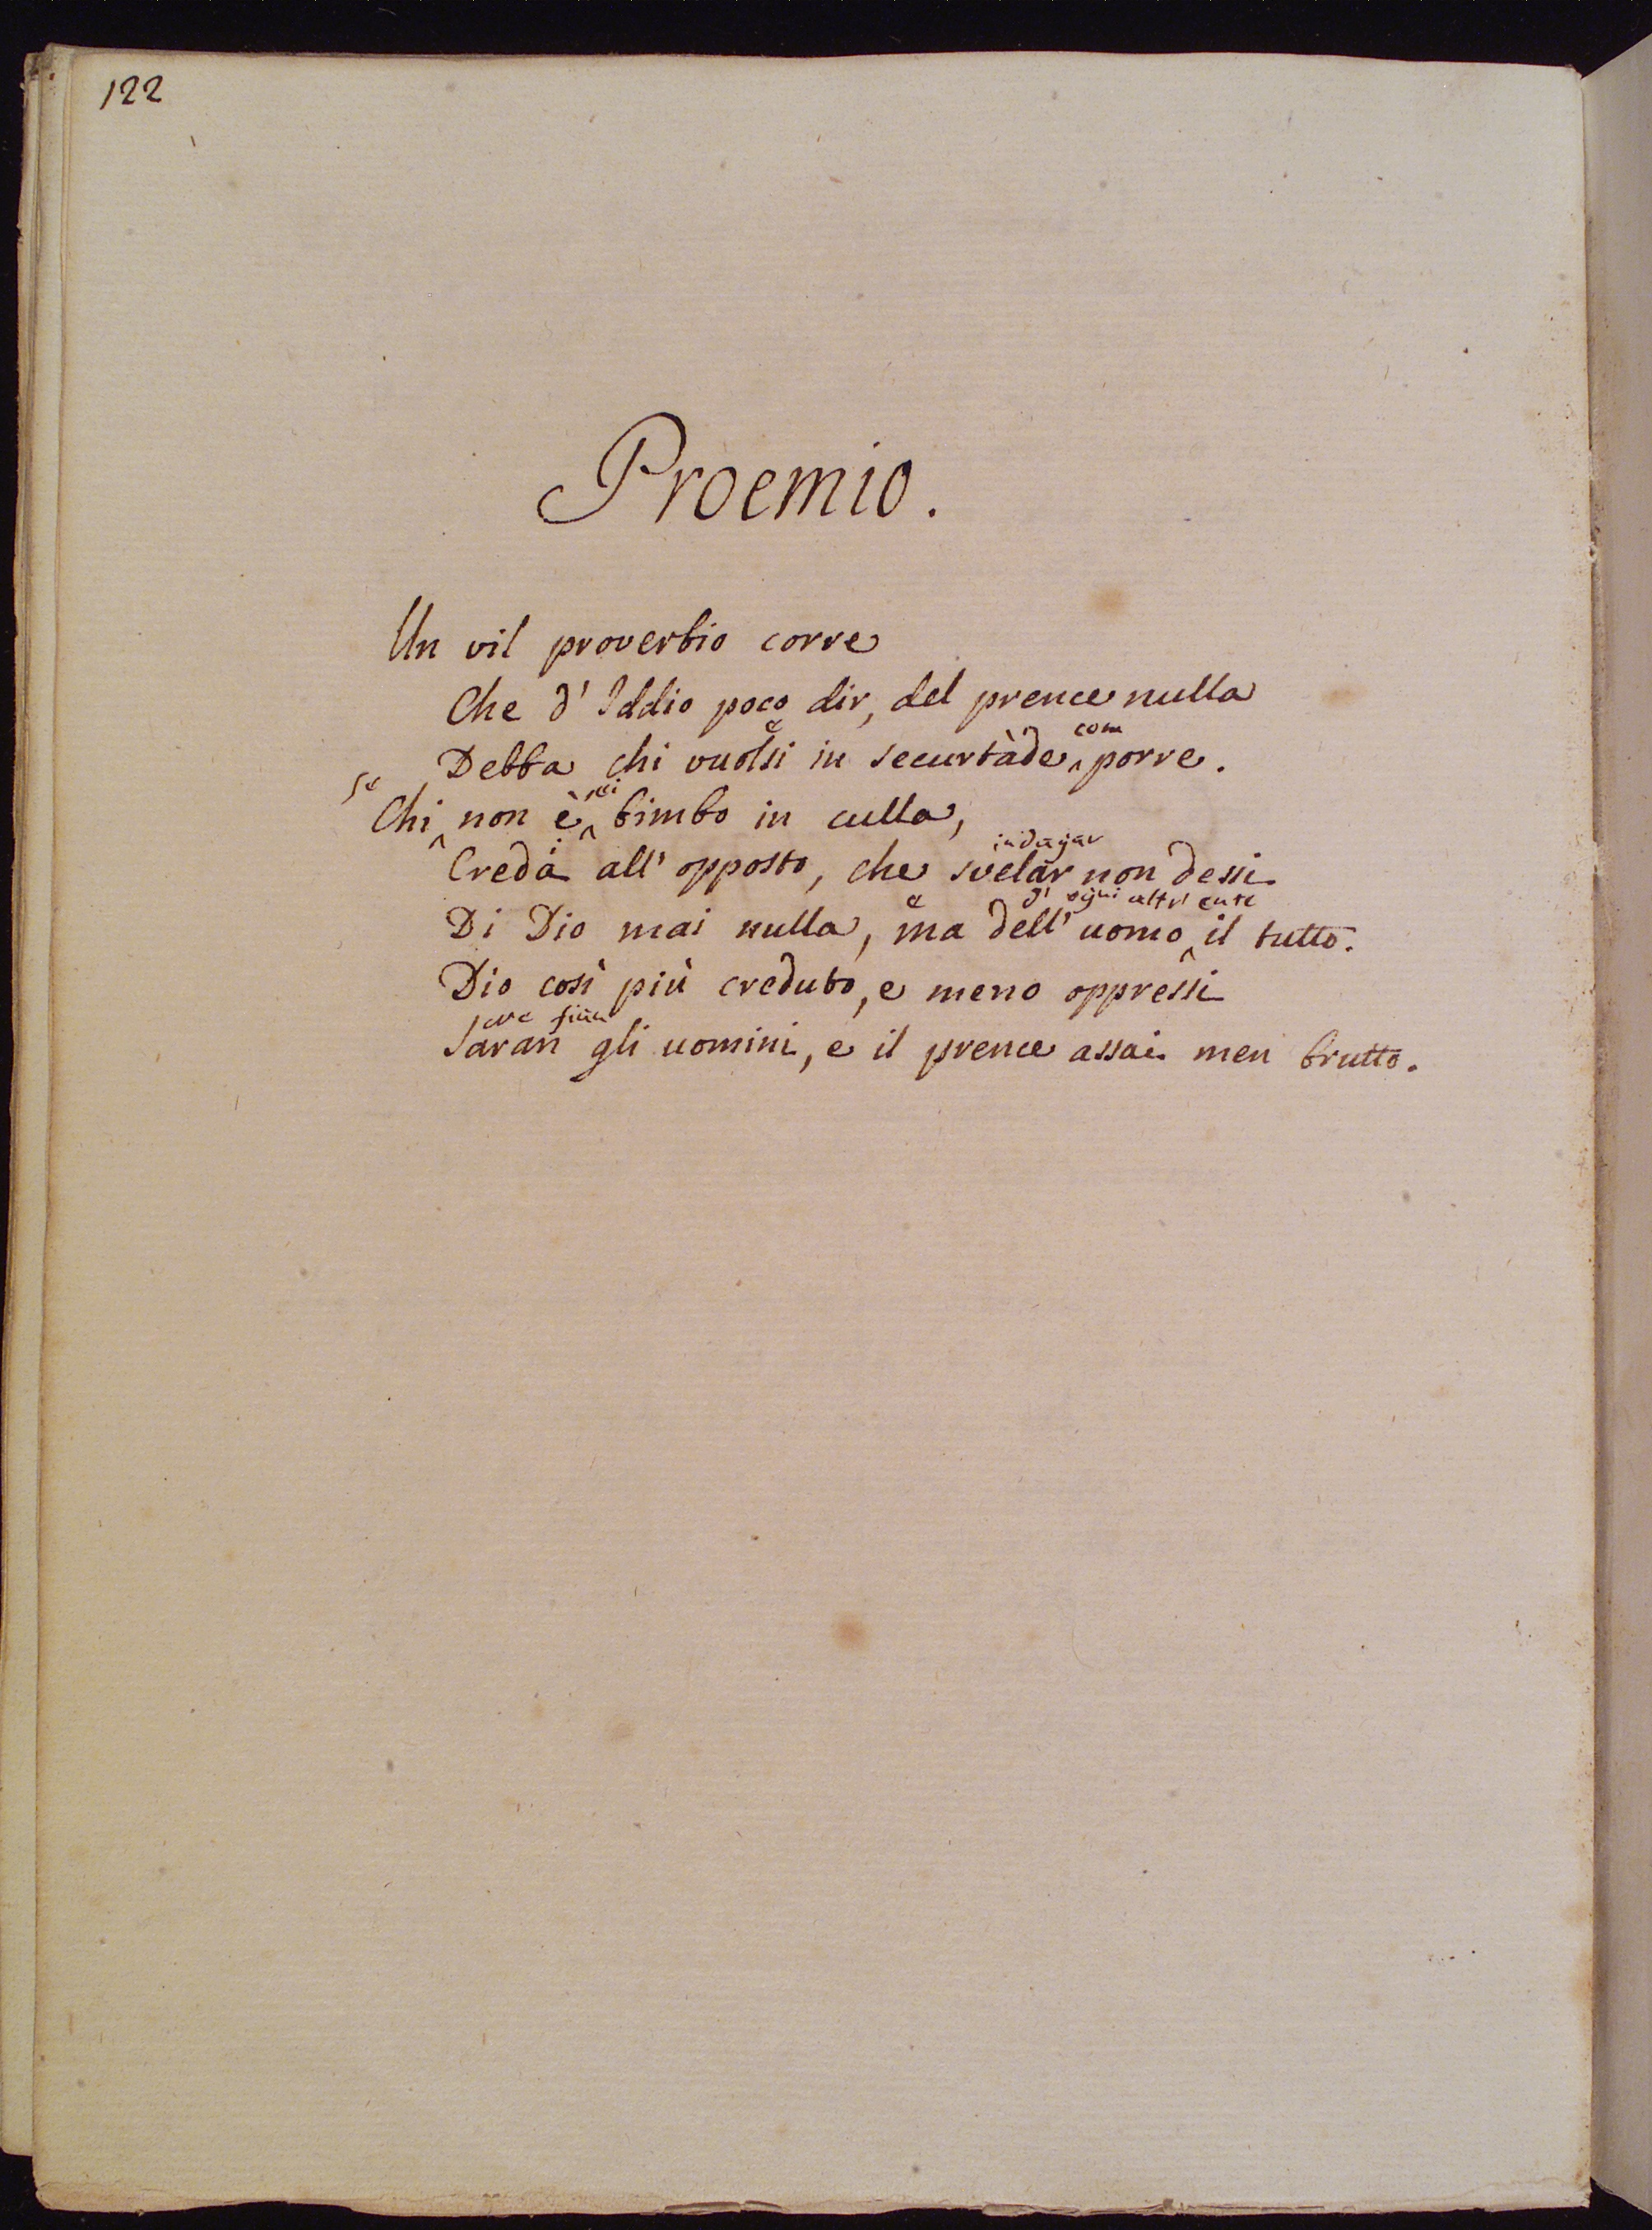 122
Proemio.
Un vil proverbio corre
Che d' Iddio poco dir, del prence nulla
e com
Debba chi vuolsi in securtàde porre.
se sei
Chi non è bimbo in culla,
i indagar
Creda all' opposto, che svelar non dessi
e d' ogni altr' ente
Di Dio mai nulla, ma dell' uomo il tutto.
Dio così più creduto, e meno oppressi
fien
Saran gli uomini, e il prence assai men brutto.